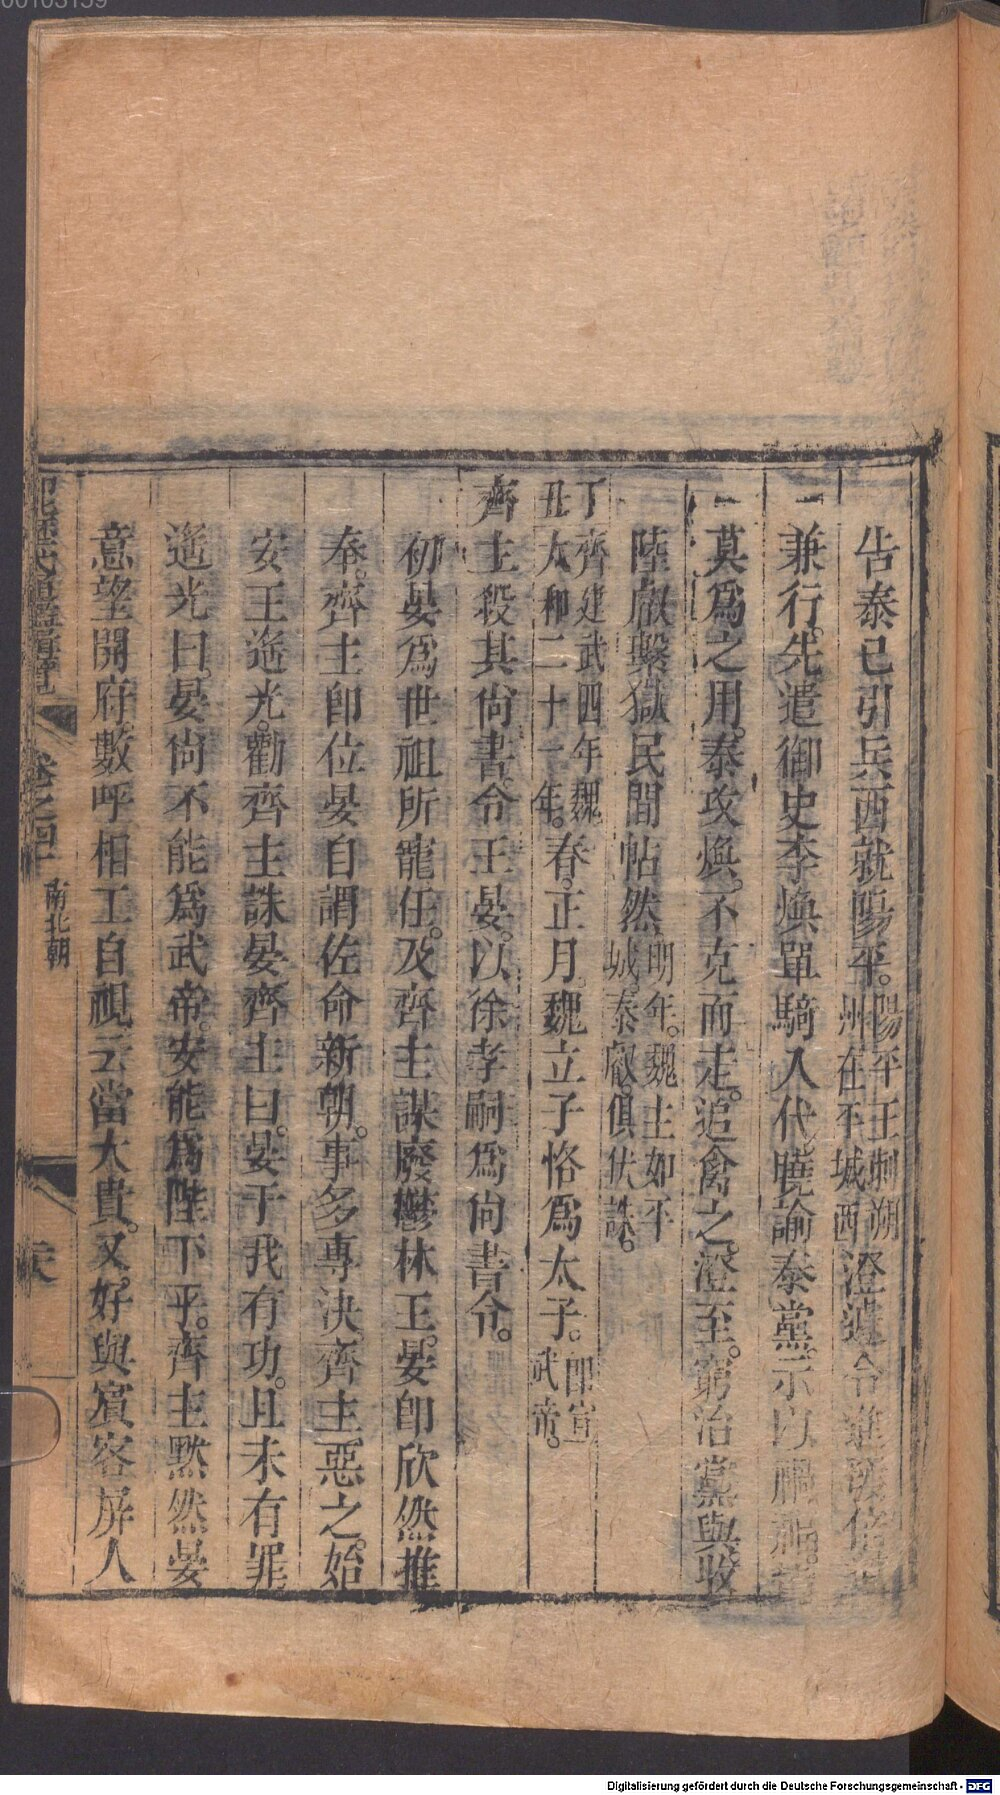 告泰已引兵西就陽平。陽平王刺朔州在平城西澄遽令進發倍道
兼行。先遣御史李煥單騎入代曉諭泰黨。示以禍福。
莫為之用。泰攻煥。不克而走。追禽之。澄至。窮治黨與收
陸叡繫獄民間帖然明年。魏主如平城。泰叡俱伏誅。
丁丑齊建武四年魏太和二十一年。春。正月。魏立子恪為太子。即宣武帝。
齊主殺其尚書。令王晏。以徐孝嗣為尚書令。
初晏為世祖所寵任。及齊主謀廢鬱林王。晏即欣然推
奉。齊主即位晏自謂佐命新朝。事多專決。齊主惡之。始
安王遙光。勸齊主誅晏齊主曰。晏于我有功。且未有罪
遙光曰。晏尚不能為武帝。安能為陛下乎。齊主默然晏
意望開府。數呼相工自視云當大貴。又好與賓客屏人
卷之四十 南北朝
Digitalisierung gefördert durch die Deutsche Forschungsgemeinschaft - DFG